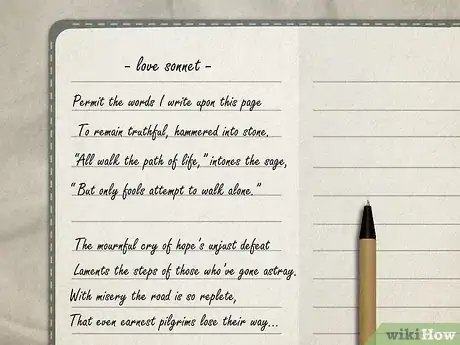 - love sonnet -
Permit the words I write upon this page
To remain truthful, hammered into stone.
"All walk the path of life," intones the sage,
"But only fools attempt to walk alone."
The mournful cry of hope's unjust defeat
Laments the steps of those who've gone astray.
With misery the road is so replete,
That even earnest pilgrims lose their way...
wikiHow